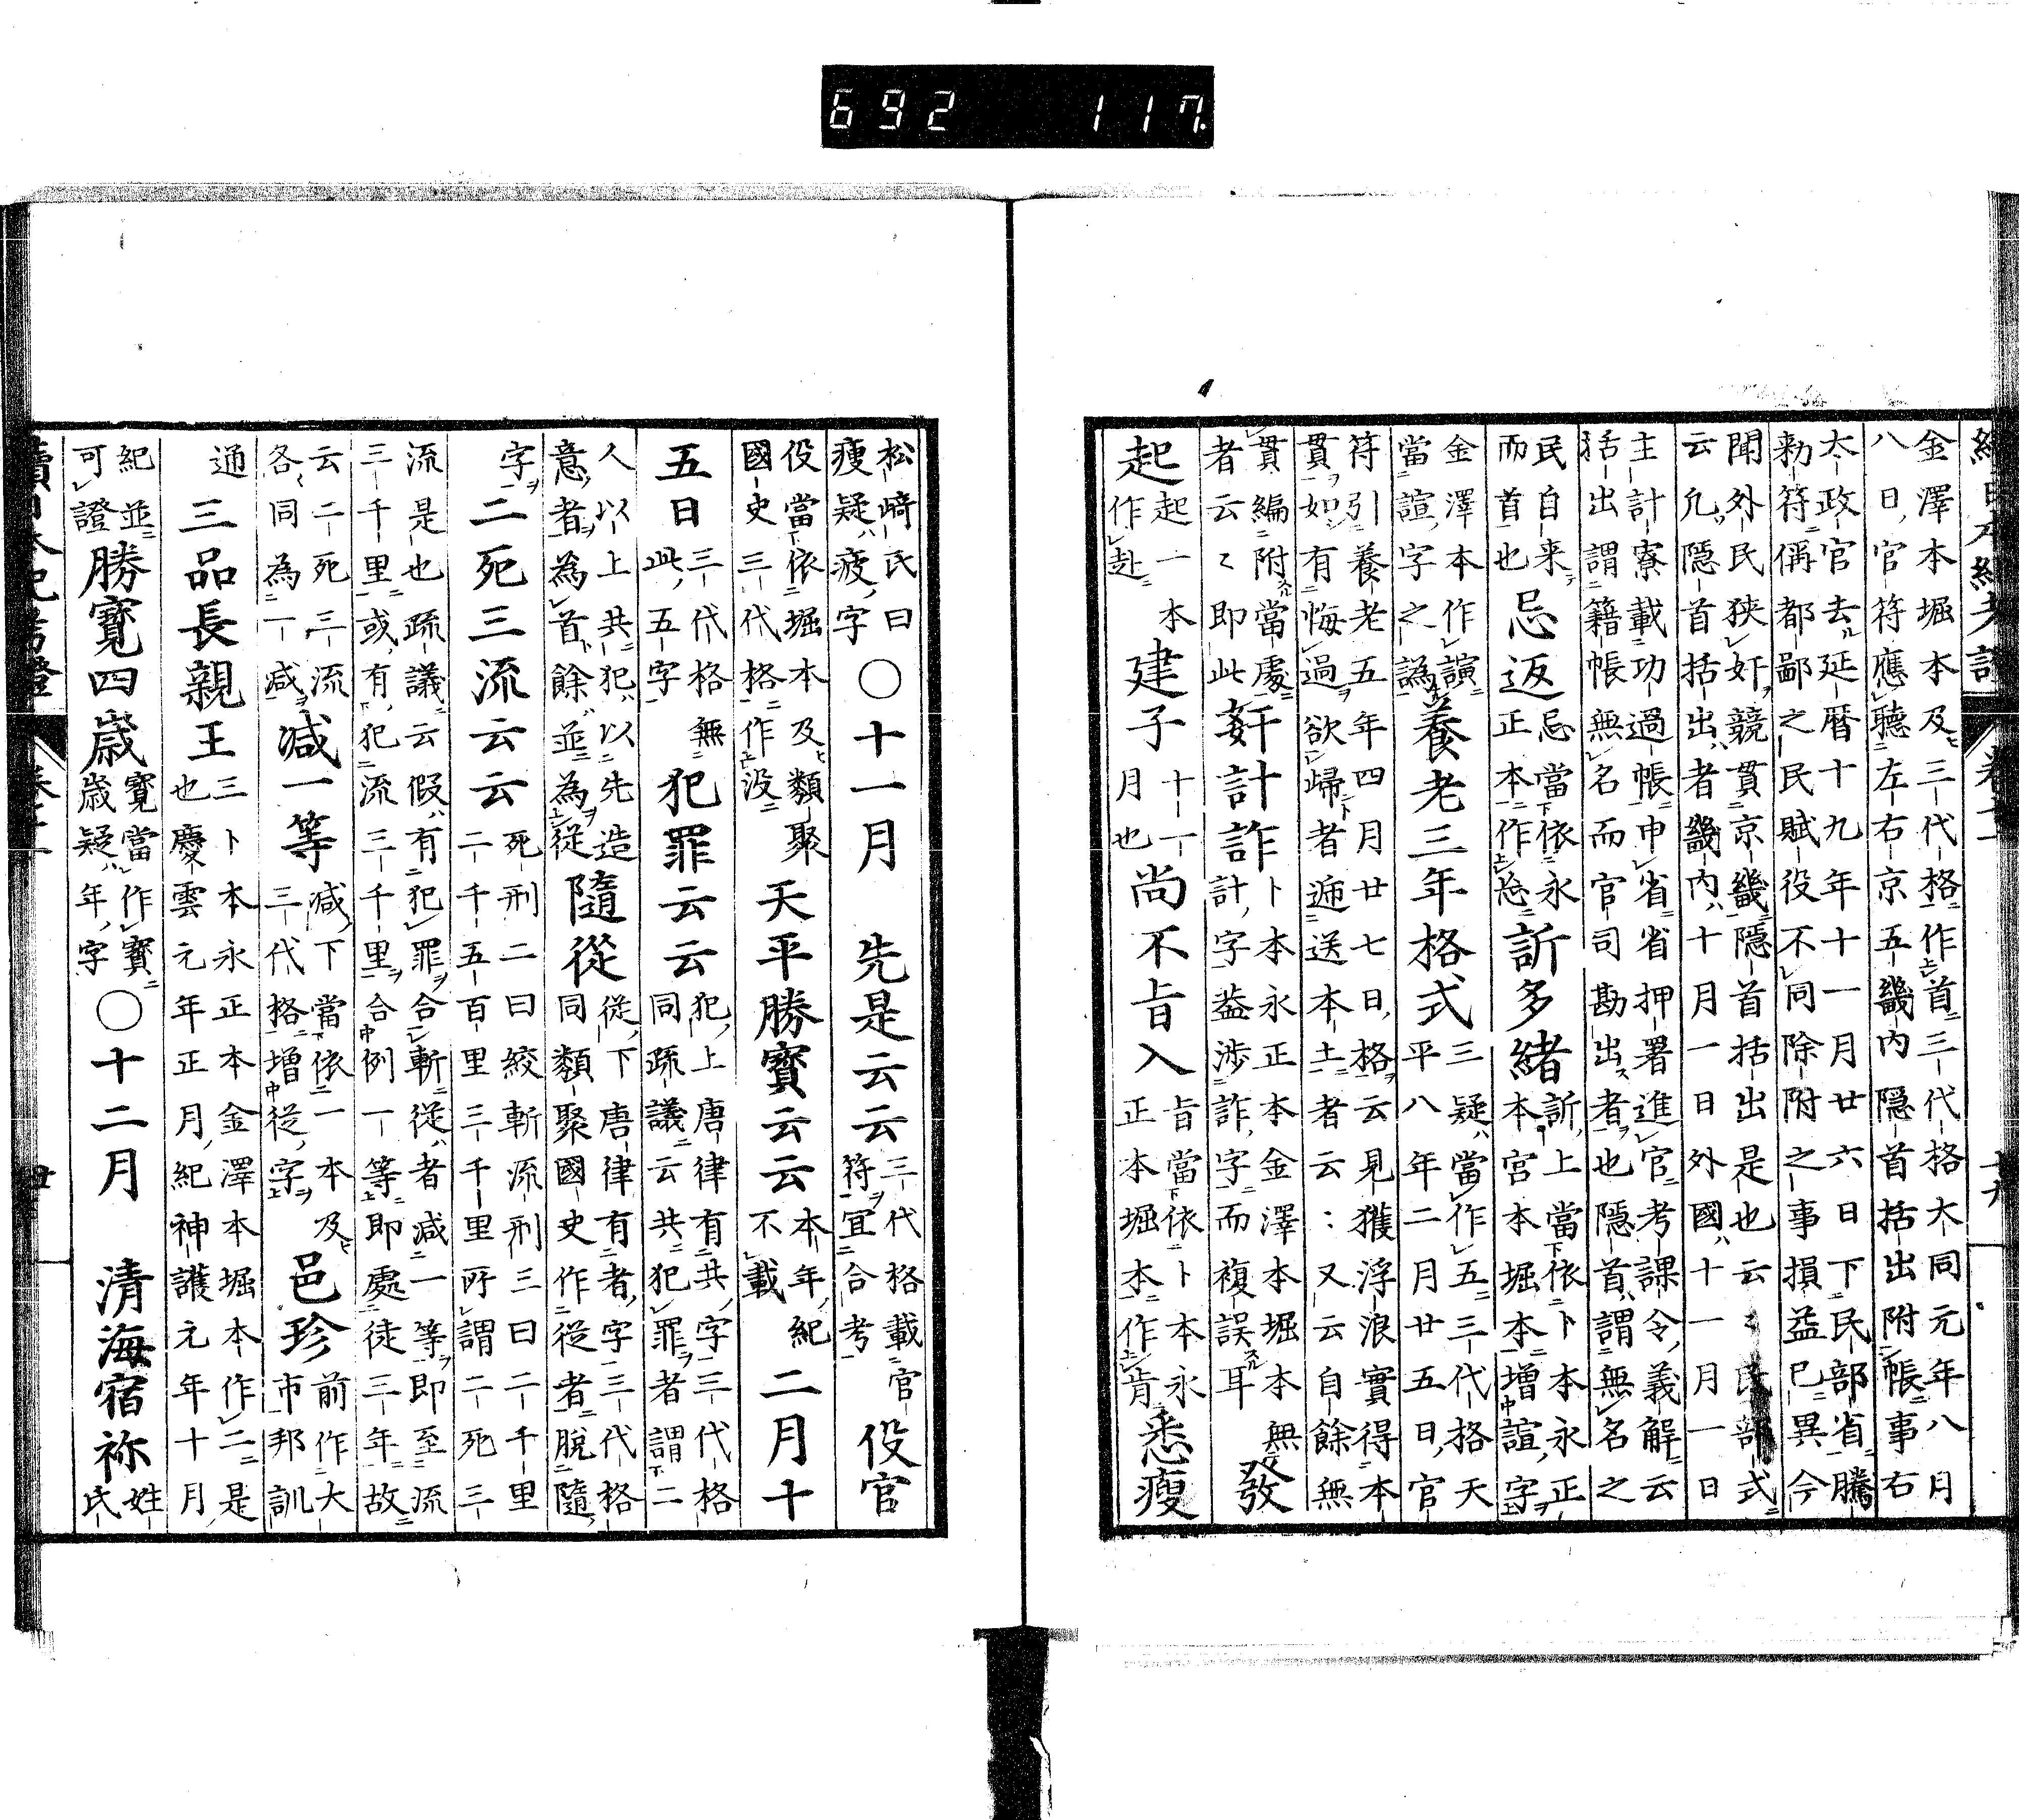 692 117
金澤本堀本及ヒ三代格作首三代格大同元年八月
八日官符應聽左右京五畿内隠首括出附帳事右
太政官去延暦十九年十一月廿六日下民部省騰
勅符偁都鄙之民賦役不同除附之事損益已異今
聞外民狭奸競貫京畿隠首括出是也云〻民部式
云凢隠首括出者畿内十月一日外國十一月一日
主計寮載功過帳申省省押署進官考課令義解云
括出謂籍帳無名而官司勘出者也隠首謂無名之
民自来
而首也
忌返
忌當依永
正本作怱
訢多緒
訢上當依卜本永正
本宮本堀本増諠字
金澤本作譮
當諠字之譌
養老三年格式
三疑當作五三代格天
平八年二月廿五日官
符引養老五年四月廿七日格云見獲浮浪實得本
貫如有悔過欲歸者逓送本土者云〻又云自餘無
貫編附當處
者云〻即此
姧計詐
卜本永正本金澤本堀本無
計字益渉詐字而複誤耳
發
起
起一本
作赴
建子
十一
月也
尚不㫖入
㫖當依卜本永
正本堀本作肯
悉瘦
松﨑氏曰
瘦疑疲字
〇十一月
先是云云
三代格載官
符冝合考
役官
役當依堀本及類聚
國史三代格作没
天平勝寳云云
本年紀
不載
二月十
五日
三代格無
此五字
犯罪云云
犯上唐律有共字三代格
同疏議云共犯罪者謂二
人以上共犯以先造
意者為首餘並為從
隨從
從下唐律有者字三代格
同類聚國史作從者脱隨
字
二死三流云云
死刑二曰絞斬流刑三曰二千里
二千五百里三千里所謂二死三
流是也疏議云假有犯罪合斬從者減一等即至流
三千里或有犯流三千里合例一等即處徒三年故
云二死三流
各同為一减
减一等
减下當依一本及ヒ
三代格増從字
邑珍
前作大
市邦訓
通
三品長親王
三卜本永正本金澤本堀本作二是
也慶雲元年正月紀神護元年十月
紀並
可證
勝寛四嵗
寛當作寳
嵗疑年字
〇十二月
清海宿祢
姓
氏